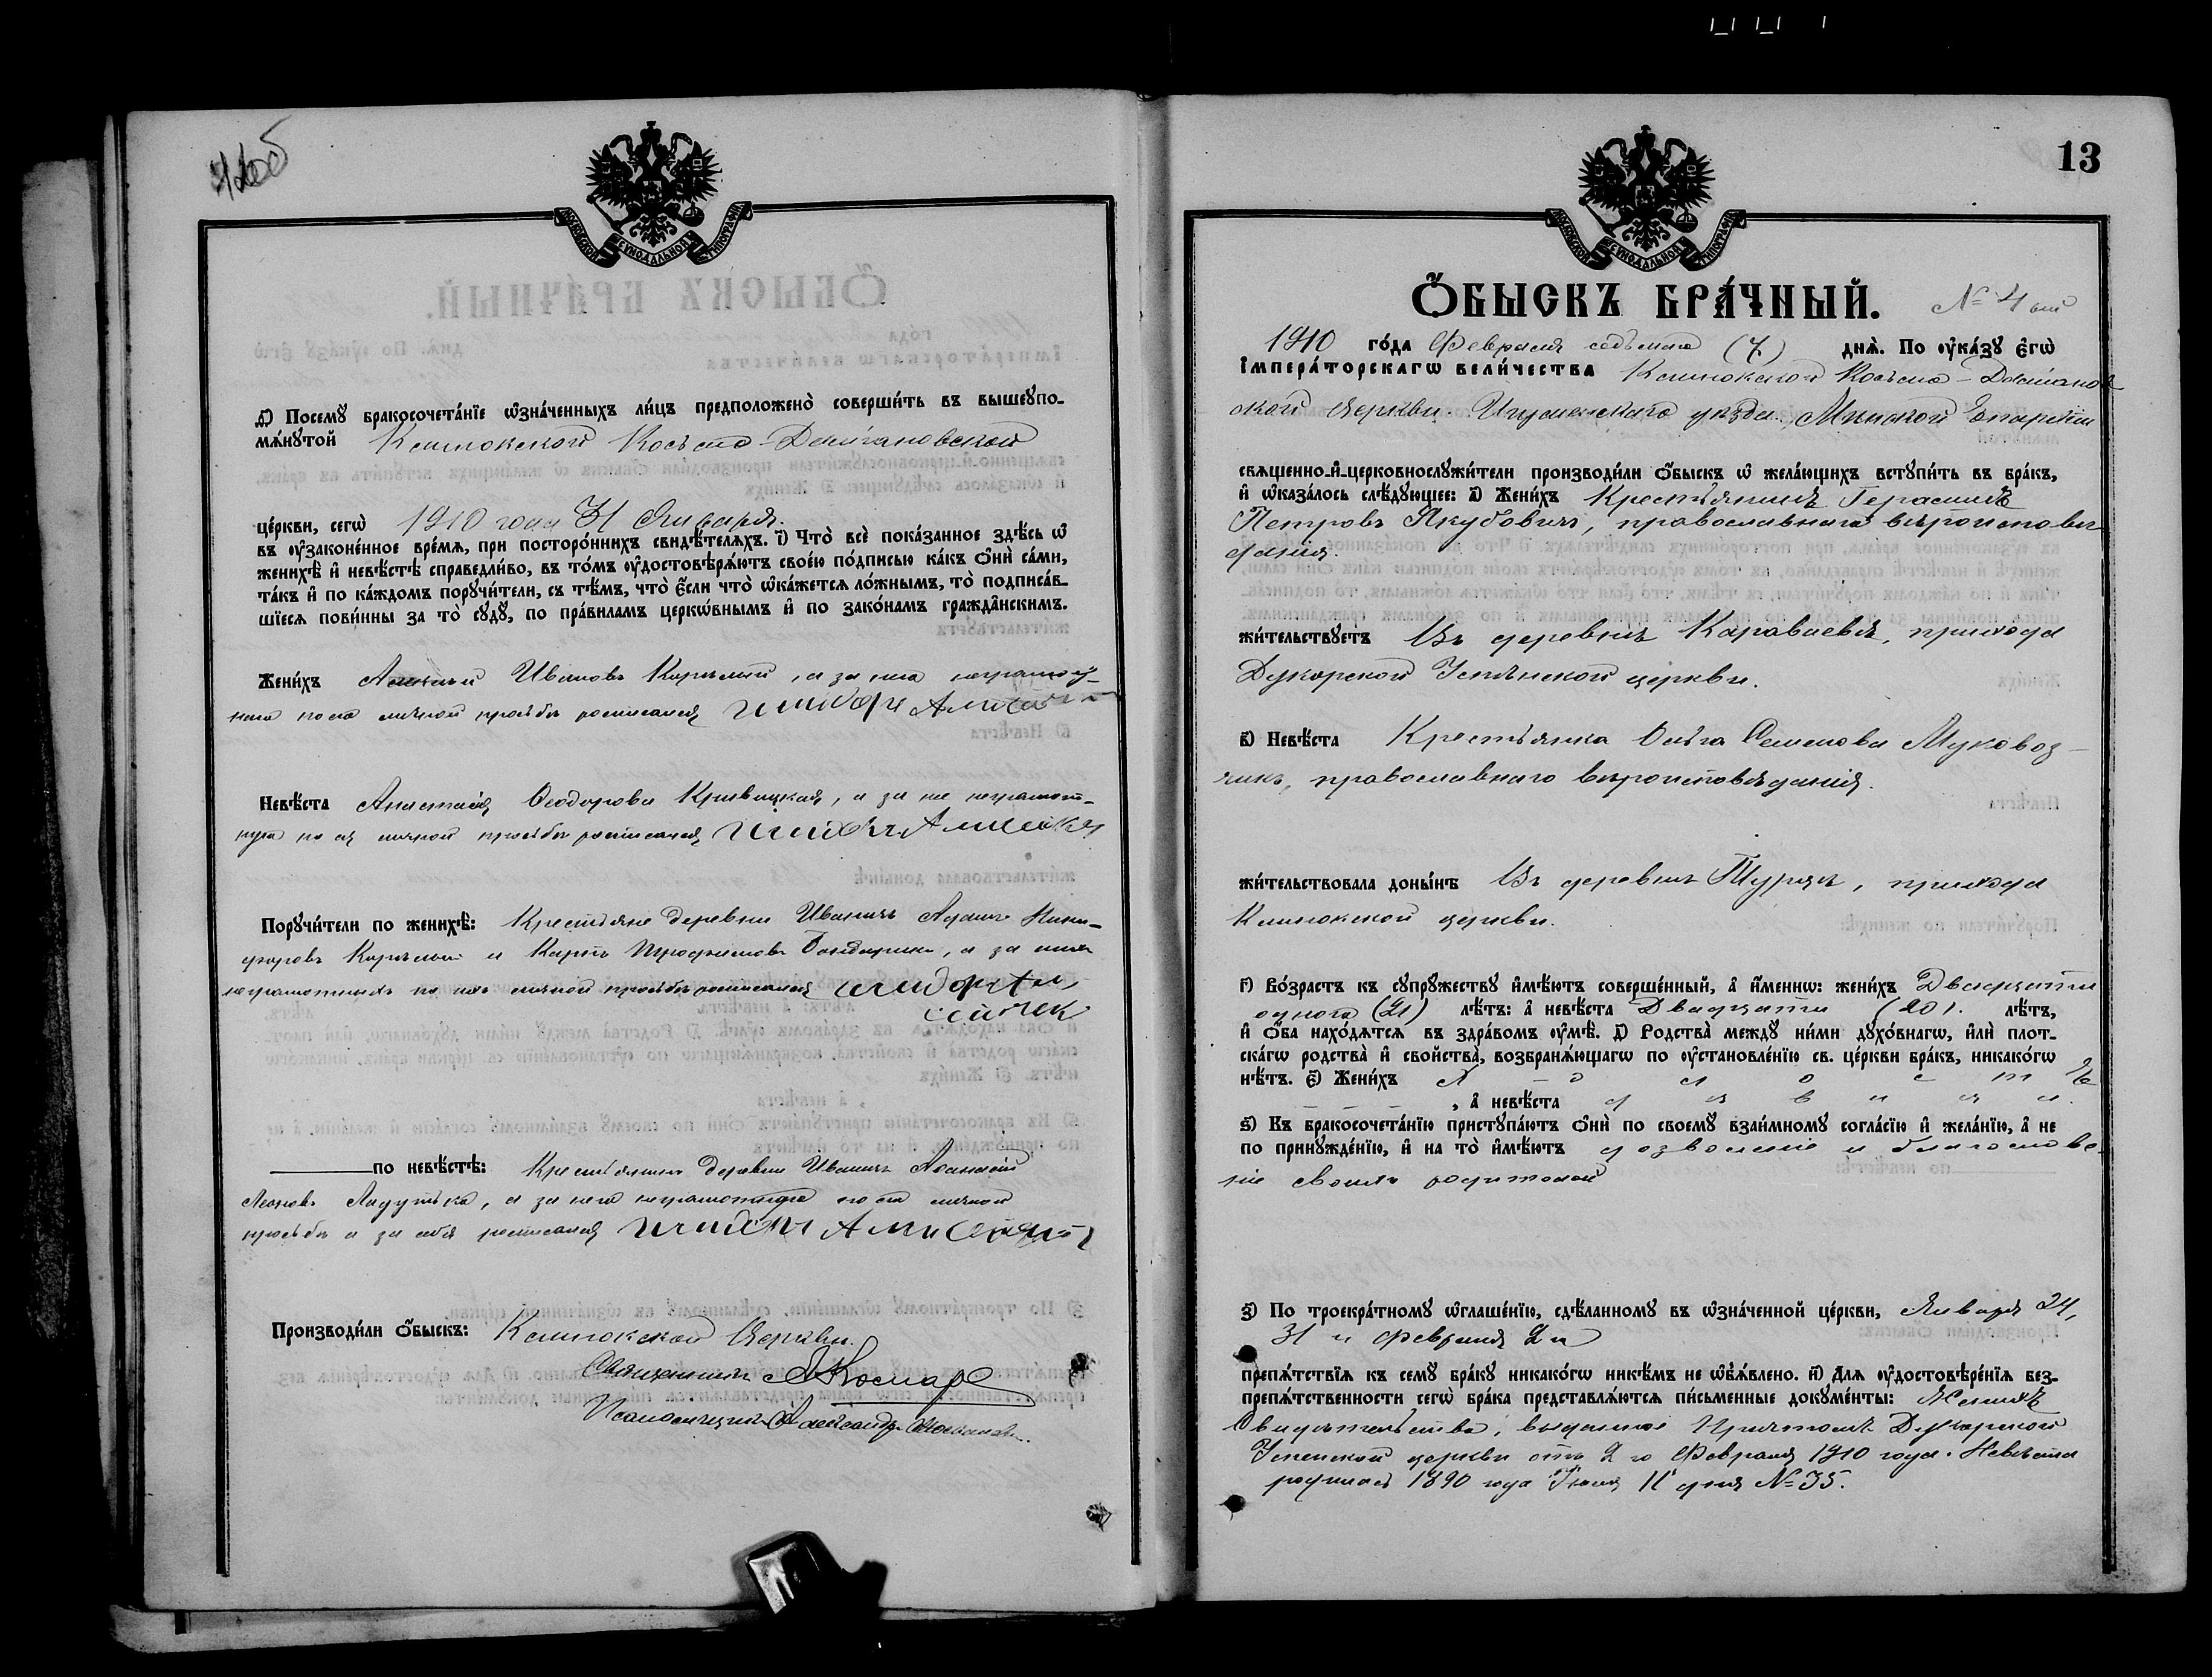 МОСКОВСКОЙ СѴНОДАЛЬНОЙ ТИПОГРАФІИ
ѳ҃) Посемꙋ̀ бракосочета́нїе ѡ҆зна́ченныхъ ли́цъ предположено̀ соверши́ть въ вышеꙋпо-
мѧ́нꙋтой Клинокской Косьмо-Даміановской
це́ркви, сегѡ̀ 1910 года 31 Января.
въ ᲂу҆законе́нное вре́мѧ, при посторо́ннихъ свидѣ́телѧхъ. і҃) Что̀ всѐ пока́занное здѣ́сь ѡ҆
женихѣ̀ и҆ невѣ́стѣ справедли́во, въ то́мъ ᲂу҆достовѣрѧ́ютъ свое́ю по́дписью ка́къ ѻ҆нѝ са́ми,
та́къ и҆ по ка́ждомъ порꙋчи́тели, съ тѣ́мъ, что̀ є҆́сли что̀ ѡ҆ка́жетсѧ ло́жнымъ, то̀ подписа́в-
шїесѧ пови́нны за то̀ сꙋдꙋ̀, по пра́виламъ церкѡ́внымъ и҆ по зако́намъ гражда́нскимъ.
Жени́хъ Ивановъ , а за него неграмот-
наго по его личной просьбѣ росписался
Невѣ́ста Анастасія Ѳеодорова Кривицкая, а за нее неграмот-
ную по ея личной просьбѣ росписался
Порꙋчи́тели по женихѣ̀: Крестьяне деревни Иваничъ Адамъ Ники-
форовъ и Карпъ Трофимовъ Бондарикъ, а за нихъ
неграмотныхъ по ихъ личной просьбѣ росписался
по невѣ́стѣ: Крестьянинъ деревни Иваничъ
Ладутька, а за него неграмотнаго по его личной
просьбѣ и за себя росписался
Производи́ли ѻ҆́быскъ: Клинокской Церкви.
Священникъ
Псаломщикъ Александръ
13
МОСКОВСКОЙ СѴНОДАЛЬНОЙ ТИПОГРАФІИ
Ѻ҆́БЫСКЪ БРА́ЧНЫЙ. № 4
1910 го́да Февраля седьмого (7) днѧ̀. По ᲂу҆ка́зꙋ є҆гѡ̀
і҆мпера́торскагѡ вели́чества Клинокской Косьмо-Даміанов-
ской Церкви Игуменскаго уѣзда, Минской Епархіи
свѧщенно-и҆-церковнослꙋжи́тели производи́ли ѻ҆́быскъ ѡ҆ жела́ющихъ встꙋпи́ть въ бра́къ,
и҆ ѡ҆каза́лось слѣ́дꙋющее: а҃) Жени́хъ Крестьянинъ Герасимъ
Петровъ Якубовичъ, православнаго вѣроисповѣ-
данія.
жи́тельствꙋетъ Въ деревнѣ Караваевѣ, прихода
Дукорской Успенской церкви.
в҃) Невѣ́ста Крестьянка Ольга Семенова Муковоз-
чикъ, православнаго вѣроисповѣданія.
жи́тельствовала доны́нѣ Въ деревнѣ Турцѣ, прихода
Клинокской церкви.
г҃) Во́зрастъ къ сꙋпрꙋ́жествꙋ и҆мѣ́ютъ соверше́нный, а҆ и҆́меннѡ: жени́хъ Двадцати
одного (21) лѣ́тъ: а҆ невѣ́ста Двадцати (20). лѣ́тъ,
и҆ ѻ҆́ба нахо́дѧтсѧ въ здра́вомъ ᲂу҆мѣ̀. д҃) Родства̀ междꙋ ни́ми дꙋхо́внагѡ, и҆лѝ плот-
ска́гѡ родства̀ и҆ сво́йства̀, возбранѧ́ющагѡ по ᲂу҆становле́нїю св. це́ркви бра́къ, никако́гѡ
нѣ́тъ. є҃) Жени́хъ холостъ
, а҆ невѣ́ста дѣвица.
ѕ҃) Къ бракосочета́нїю пристꙋпа́ютъ ѻ҆нѝ по своемꙋ̀ взаи́мномꙋ согла́сїю и҆ жела́нїю, а҆ не
по принꙋжде́нїю, и҆ на то̀ и҆мѣ́ютъ дозволеніе и благослове-
ніе своихъ родителей
з҃) По троекра́тномꙋ ѡ҆глаше́нїю, сдѣ́ланномꙋ въ ѡ҆зна́ченной це́ркви, Января 24,
31 и Февраля 2 и
препѧ́тствїѧ къ семꙋ̀ бра́кꙋ никако́гѡ никѣ́мъ не ѡ҆бъѧ́влено. и҃) Длѧ ᲂу҆достовѣре́нїѧ без-
препѧ́тственности сегѡ̀ бра́ка представлѧ́ютсѧ пи́сьменные докꙋме́нты: Женихъ
Свидѣтельство, выданное Причтомъ Дукорской
Успенской церкви отъ 2 го Февраля 1910 года. Невѣста
родилась 1890 года Іюля 11 дня № 35.